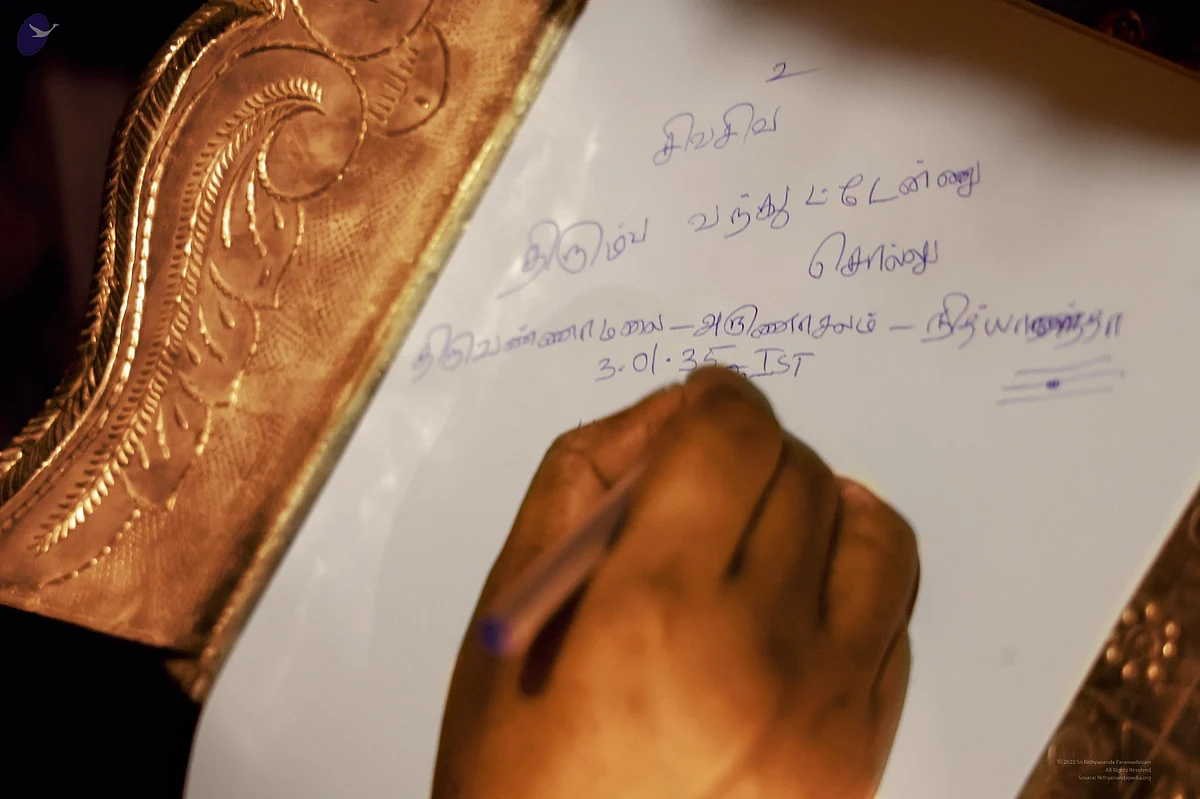 உ
சிவசிவ
திரும்ப வந்துட்டேன்னு
சொல்லு
திருவண்ணாமலை – அருணாசலம் – நித்யானந்தா
3.01.35 – IST
© 2022 Sri Nithyananda Paramashivam
All Rights Reserved
Source: Nithyanandapedia.org